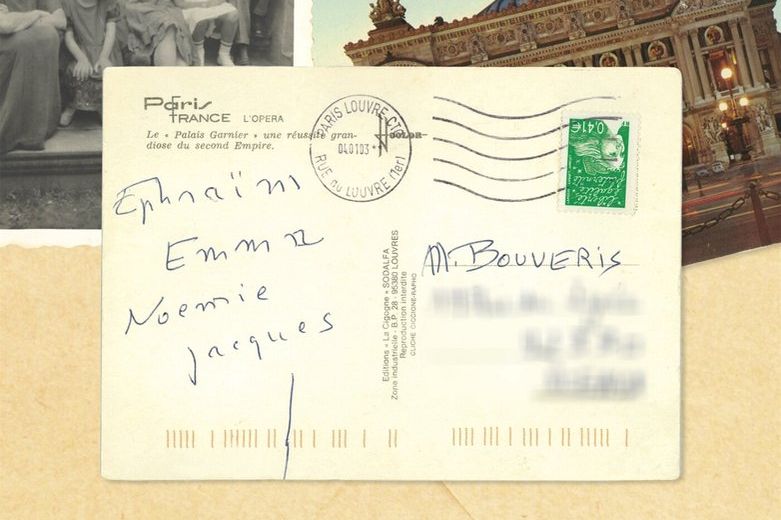 Paris
FRANCE L'OPERA
Le « Palais Garnier » une réussite gran-
diose du second Empire.
PARIS LOUVRE CTC
040103
RUE DU LOUVRE (1er)
COLOR
0,41€
Liberté
Égalité
Fraternité
Ephraïm
Emma
Noemie
Jacques
Editions « La Cigogne » SODALFA
Zone industrielle - B.P. 28 - 95380 LOUVRES
Reproduction interdite
CLICHE CICCIONE-RAPHO
M. BOUVERIS